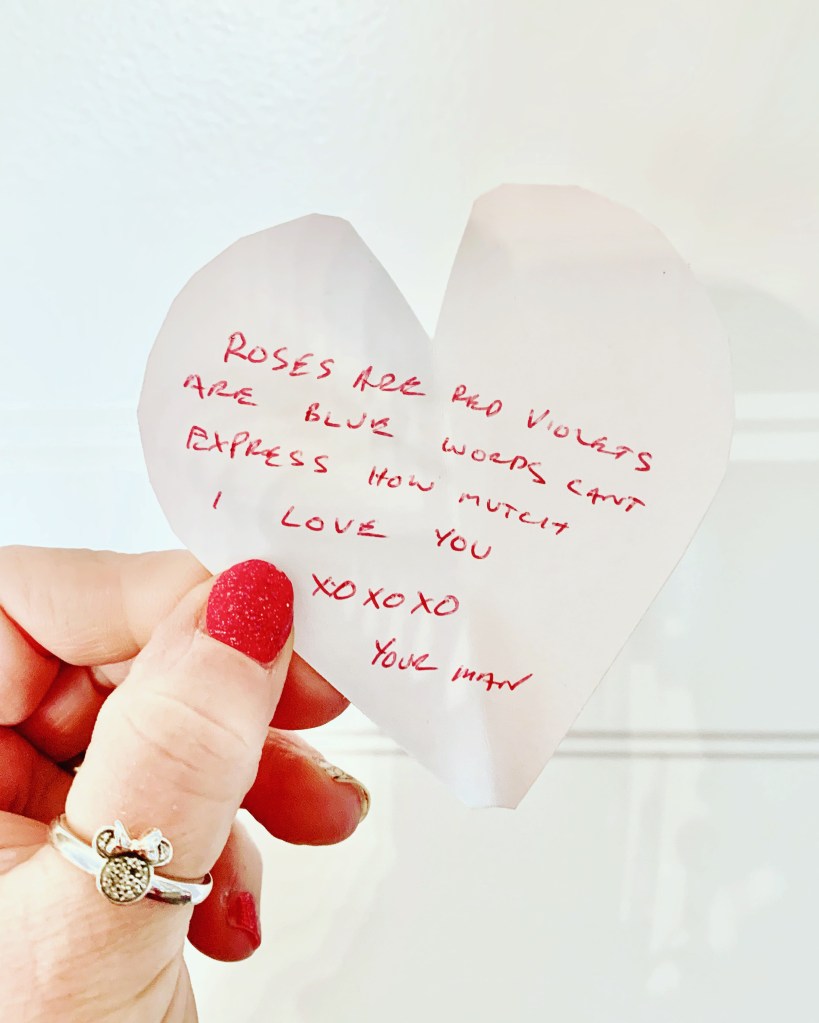 ROSES ARE RED VIOLETS
ARE BLUE WORDS CANT
EXPRESS HOW MUTCH
I LOVE YOU
XOXOXO
YOUR MAN